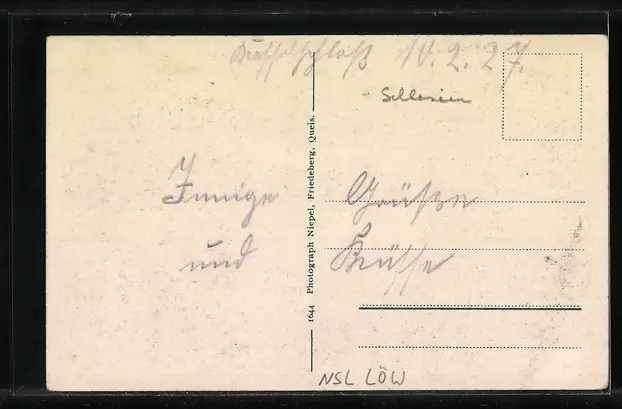 10.2.27.
Schlesien
Innige Grüße
und Küsse
1644 Photograph Niepel, Friedeberg, Queis.
NSL LÖW